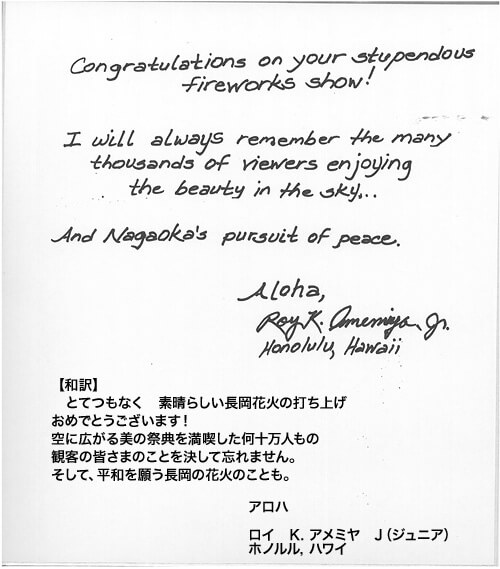 Congratulations on your stupendous
fireworks show!
I will always remember the many
thousands of viewers enjoying
the beauty in the sky...
And Nagaoka's pursuit of peace.
Aloha,
Roy K. Amemiya, Jr.
Honolulu, Hawaii
【和訳】
とてつもなく　素晴らしい長岡花火の打ち上げ
おめでとうございます！
空に広がる美の祭典を満喫した何十万人もの
観客の皆さまのことを決して忘れません。
そして、平和を願う長岡の花火のことも。
アロハ
ロイ　K. アメミヤ　J（ジュニア）
ホノルル, ハワイ